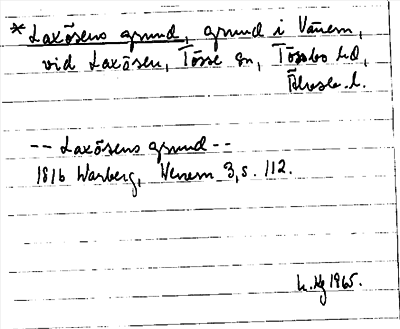 * Laxåsens grund, grund i Vänern,
vid Laxåsen, Tösse sn, Tössbo hd,
Älvsb. l.
-- Laxåsens grund --
1816 Warberg, Wenern 3, s. 112.
1965.